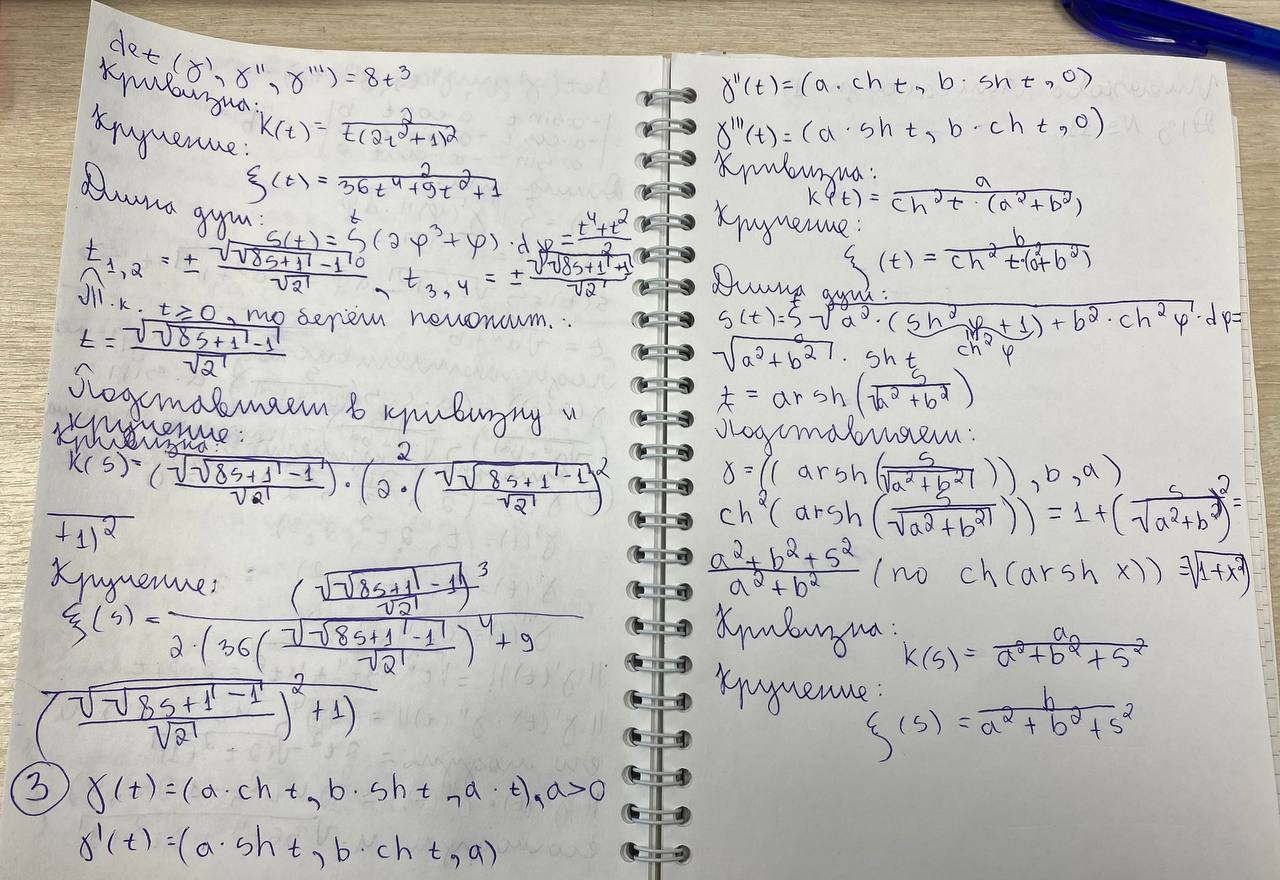 det (γ', γ'', γ''') = 8t³
Кривизна:
K(t) = 2 / t(2t²+1)²
Кручение:
ξ(t) = 2 / 36t⁴+9t²+1
Длина дуги:
s(t) = ∫₀ᵗ (2φ³+φ)·dφ = t⁴+t² / 2
t₁,₂ = ± √(√(8s+1) -1) / √2, t₃,₄ = ± √(√(8s+1) +1) / √2
Т.к. t ≥ 0, то берём положит.:
t = √(√(8s+1) -1) / √2
Подставляем в кривизну и
кручение:
Кривизна:
K(s) = 2 / (√(√(8s+1) -1) / √2)·(2·(√(√(8s+1) -1) / √2)²
+1)²
Кручение:
ξ(s) = (√(√(8s+1) -1) / √2)³ / 2·(36(√(√(8s+1) -1) / √2)⁴+9
(√(√(8s+1) -1) / √2)²+1)
③ γ(t)=(a·ch t, b·sh t, a·t), a>0
γ'(t)=(a·sh t, b·ch t, a)
γ''(t)=(a·ch t, b·sh t, 0)
γ'''(t)=(a·sh t, b·ch t, 0)
Кривизна:
K(t) = a / ch²t·(a²+b²)
Кручение:
ξ(t) = b / ch²t·(a²+b²)
Длина дуги:
s(t)=∫₀ᵗ √(a²·(sh²φ+1)+b²·ch²φ)·dφ=
ch²φ
√(a²+b²)·sh t
t = arsh(s / √(a²+b²))
Подставляем:
γ=((arsh(s / √(a²+b²))), b, a)
ch²(arsh(s / √(a²+b²))) = 1+(s / √(a²+b²))²=
a²+b²+s² / a²+b² (по ch(arsh x)) =√(1+x²)
Кривизна:
K(s) = a / a²+b²+s²
Кручение:
ξ(s) = b / a²+b²+s²